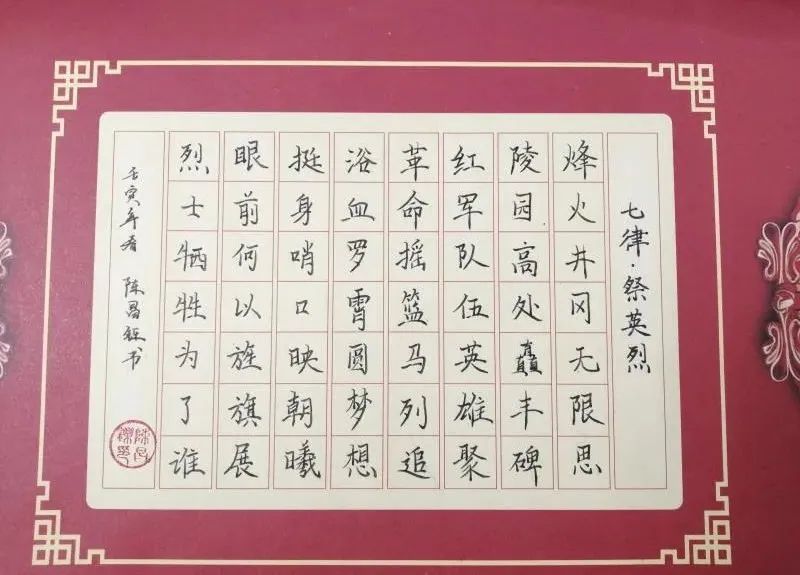 七律·祭英烈
烽火井冈无限思
陵园高处矗丰碑
红军队伍英雄聚
革命摇篮马列追
浴血罗霄圆梦想
挺身哨口映朝曦
眼前何以旌旗展
烈士牺牲为了谁
壬寅年春 陈昌 书